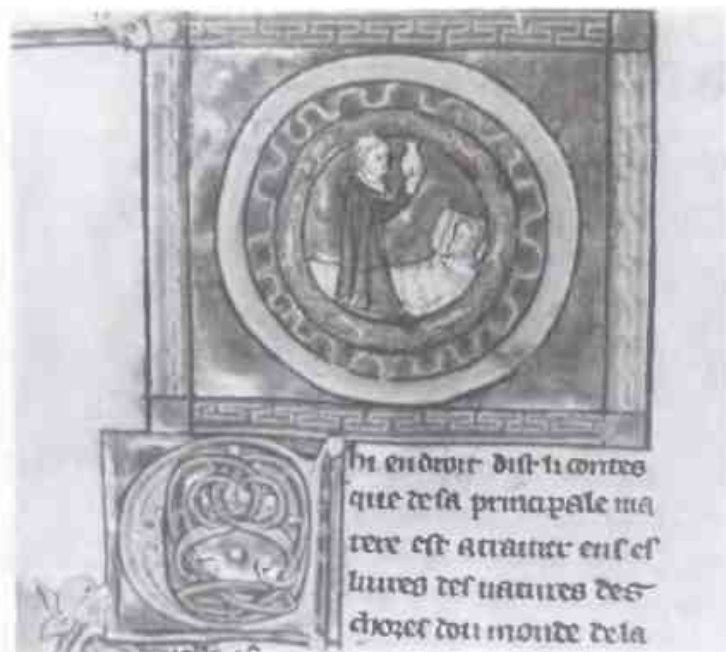 Chi endroit dist li contes
que de sa principale ma
tere est a traitier en ses
livres des natures des
choses dou monde de la